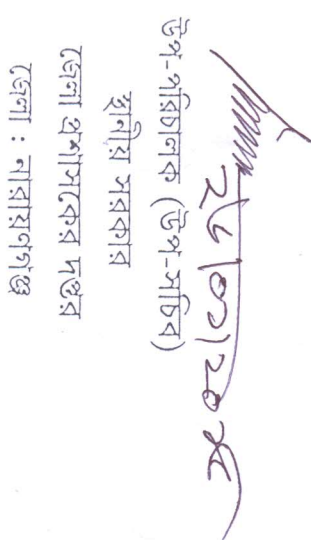 ২৮/০১/২০২৫
উপ-পরিচালক (উপ-সচিব)
স্থানীয় সরকার
জেলা প্রশাসকের দপ্তর
জেলা : নারায়ণগঞ্জ